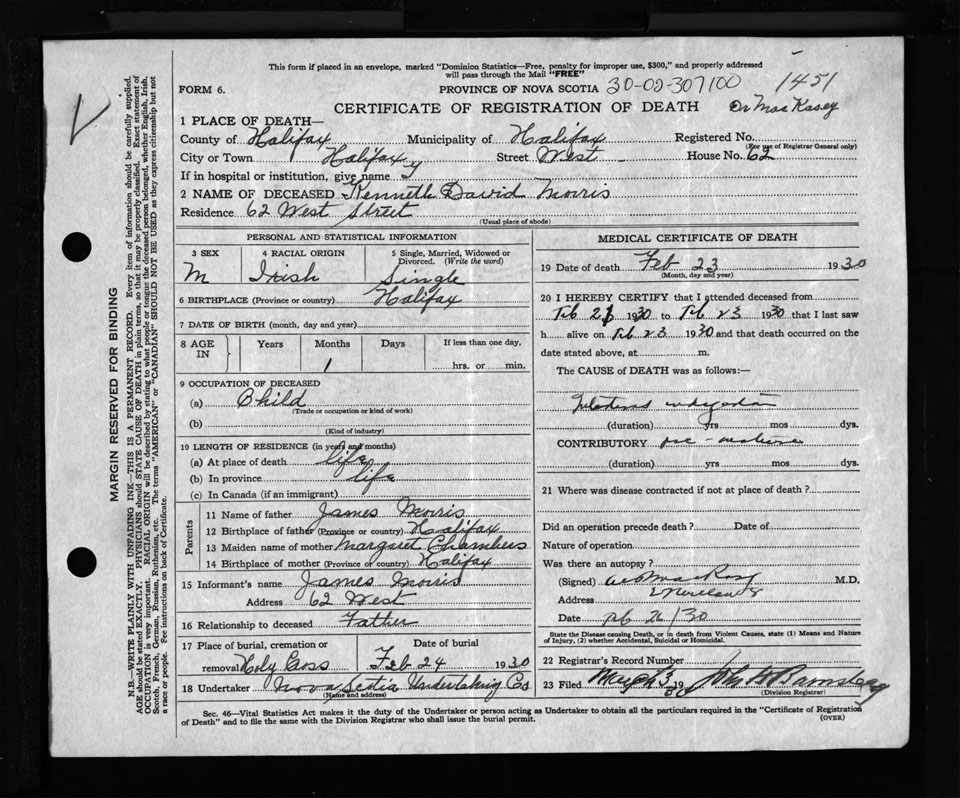 This form if placed in an envelope, marked "Dominion Statistics—Free, penalty for improper use, $300," and properly addressed
will pass through the Mail "FREE"
FORM 6.
PROVINCE OF NOVA SCOTIA 30-02-307100 1451
CERTIFICATE OF REGISTRATION OF DEATH Dr MacKasey
1 PLACE OF DEATH—
County of Halifax Municipality of Halifax Registered No.
(For use of Registrar General only)
City or Town Halifax Street West House No. 62
If in hospital or institution, give name
2 NAME OF DECEASED Kenneth David Morris
Residence 62 West Street
(Usual place of abode)
PERSONAL AND STATISTICAL INFORMATION
3 SEX 4 RACIAL ORIGIN 5 Single, Married, Widowed or Divorced. (Write the word)
M Irish Single
6 BIRTHPLACE (Province or country) Halifax
7 DATE OF BIRTH (month, day and year)
8 AGE IN Years Months Days If less than one day,
1 hrs. or min.
9 OCCUPATION OF DECEASED
(a) Child
(Trade or occupation or kind of work)
(b)
(Kind of industry)
10 LENGTH OF RESIDENCE (in years and months)
(a) At place of death life
(b) In province life
(c) In Canada (if an immigrant)
Parents
11 Name of father James Morris
12 Birthplace of father (Province or country) Halifax
13 Maiden name of mother Margret Chambers
14 Birthplace of mother (Province or country) Halifax
15 Informant's name James Morris
Address 62 West
16 Relationship to deceased Father
17 Place of burial, cremation or Date of burial
removal Holy Cross Feb 24 1930
18 Undertaker Nova Scotia Undertaking Co
(Name and address)
MEDICAL CERTIFICATE OF DEATH
19 Date of death Feb 23 1930
(Month, day and year)
20 I HEREBY CERTIFY that I attended deceased from
Feb 1930 to Feb 23 1930 that I last saw
h alive on Feb 23 1930 and that death occurred on
date stated above, at m.
The CAUSE of DEATH was as follows:—
(duration) yrs mos dys.
CONTRIBUTORY
(duration) yrs mos dys.
21 Where was disease contracted if not at place of death?
Did an operation precede death? Date of
Nature of operation
Was there an autopsy?
(Signed) M.D.
Address
Date Feb 26/30
State the Disease causing Death, or in death from Violent Causes, state (1) Means and Nature
of Injury, (2) whether Accidental, Suicidal or Homicidal.
22 Registrar's Record Number
23 Filed March 3 19
(Division Registrar)
Sec. 46—Vital Statistics Act makes it the duty of the Undertaker or person acting as Undertaker to obtain all the particulars required in the "Certificate of Registration
of Death" and to file the same with the Division Registrar who shall issue the burial permit.
(OVER)
MARGIN RESERVED FOR BINDING
N.B.—WRITE PLAINLY WITH UNFADING INK—THIS IS A PERMANENT RECORD. Every item of information should be carefully supplied.
AGE should be stated EXACTLY. PHYSICIANS should STATE CAUSE OF DEATH in plain terms, so that it may be properly classified. Exact statement of
OCCUPATION is very important. RACIAL ORIGIN will be described by stating to what people or tongue the deceased person belonged, whether English, Irish,
Scotch, French, German, Russian, Ruthenian, etc. The terms "AMERICAN" or "CANADIAN" SHOULD NOT BE USED as they express citizenship but not
a race or people. See instructions on back of Certificate.